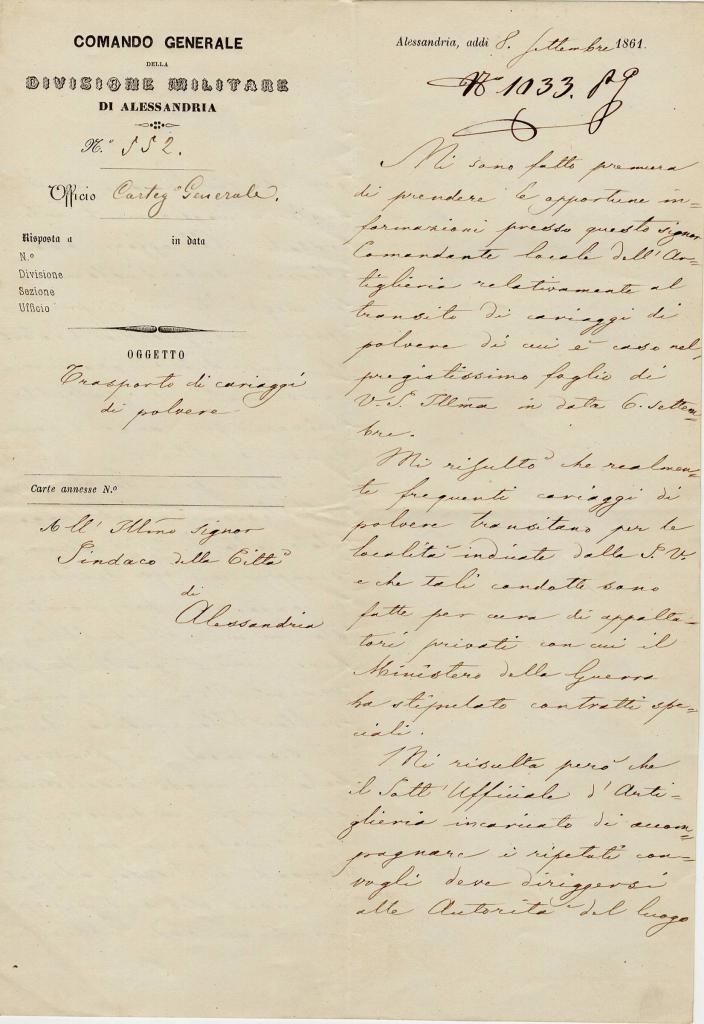 COMANDO GENERALE
DELLA
DIVISIONE MILITARE
DI ALESSANDRIA
N.º 552.
Ufficio Carteg.º Generale.
Risposta a in data
N.º
Divisione
Sezione
Ufficio
OGGETTO
Trasporto di cariaggi
di polvere
Carte annesse N.º
All' Illmo signor
Sindaco della Città
di
Alessandria
Alessandria, addì 8. Settembre 1861.
Nº 1033.
Mi sono fatto premura
di prendere le opportune in=
formazioni presso questo signor
Comandante locale dell'Ar=
tiglieria relativamente al
transito di cariaggi di
polvere di cui è caso nel
pregiatissimo foglio di
V. S. Illma in data 6. settem=
bre.
Mi risultò che realmen=
te frequenti cariaggi di
polvere transitano per le
località indicate dalla S. V.
e che tali condotte sono
fatte per cura di appalta=
tori privati con cui il
Ministero della Guerra
ha stipulato contratti spe=
ciali.
Mi risulta però che
il Sott'Ufficiale d'Arti=
glieria incaricato di accom=
pagnare i ripetuti con=
vogli deve diriggersi
alle Autorità del luogo